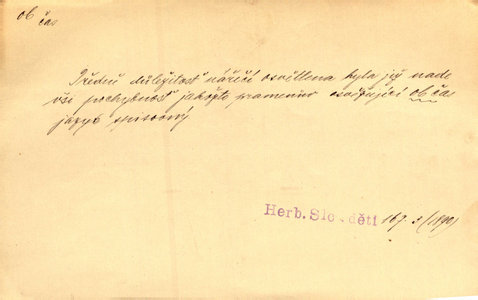 ob
čas
Předně důležitost nářečí osvětlena byla již nade
vši pochybnost jakožto pramenův osvěžující ob čas
jazyk spisovný
Herb. Slov. děti 167 (1890)